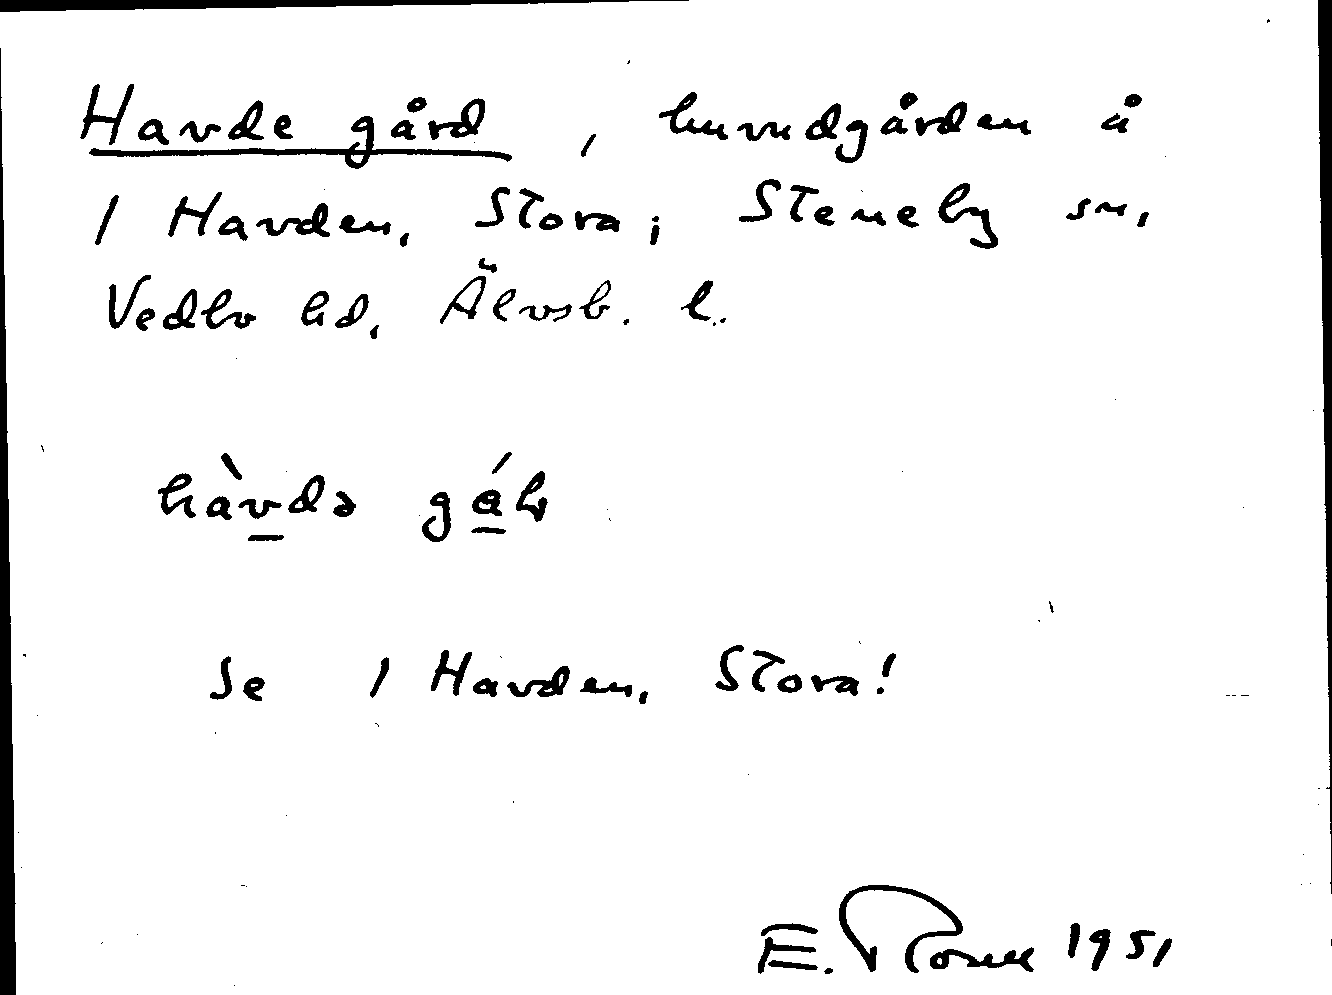 Havde gård, huvudgården å
1 Havden, Stora; Steneby sn,
Vedbo hd, Älvsb. l.
hàvdə
Se 1 Havden, Stora!
E. 1951